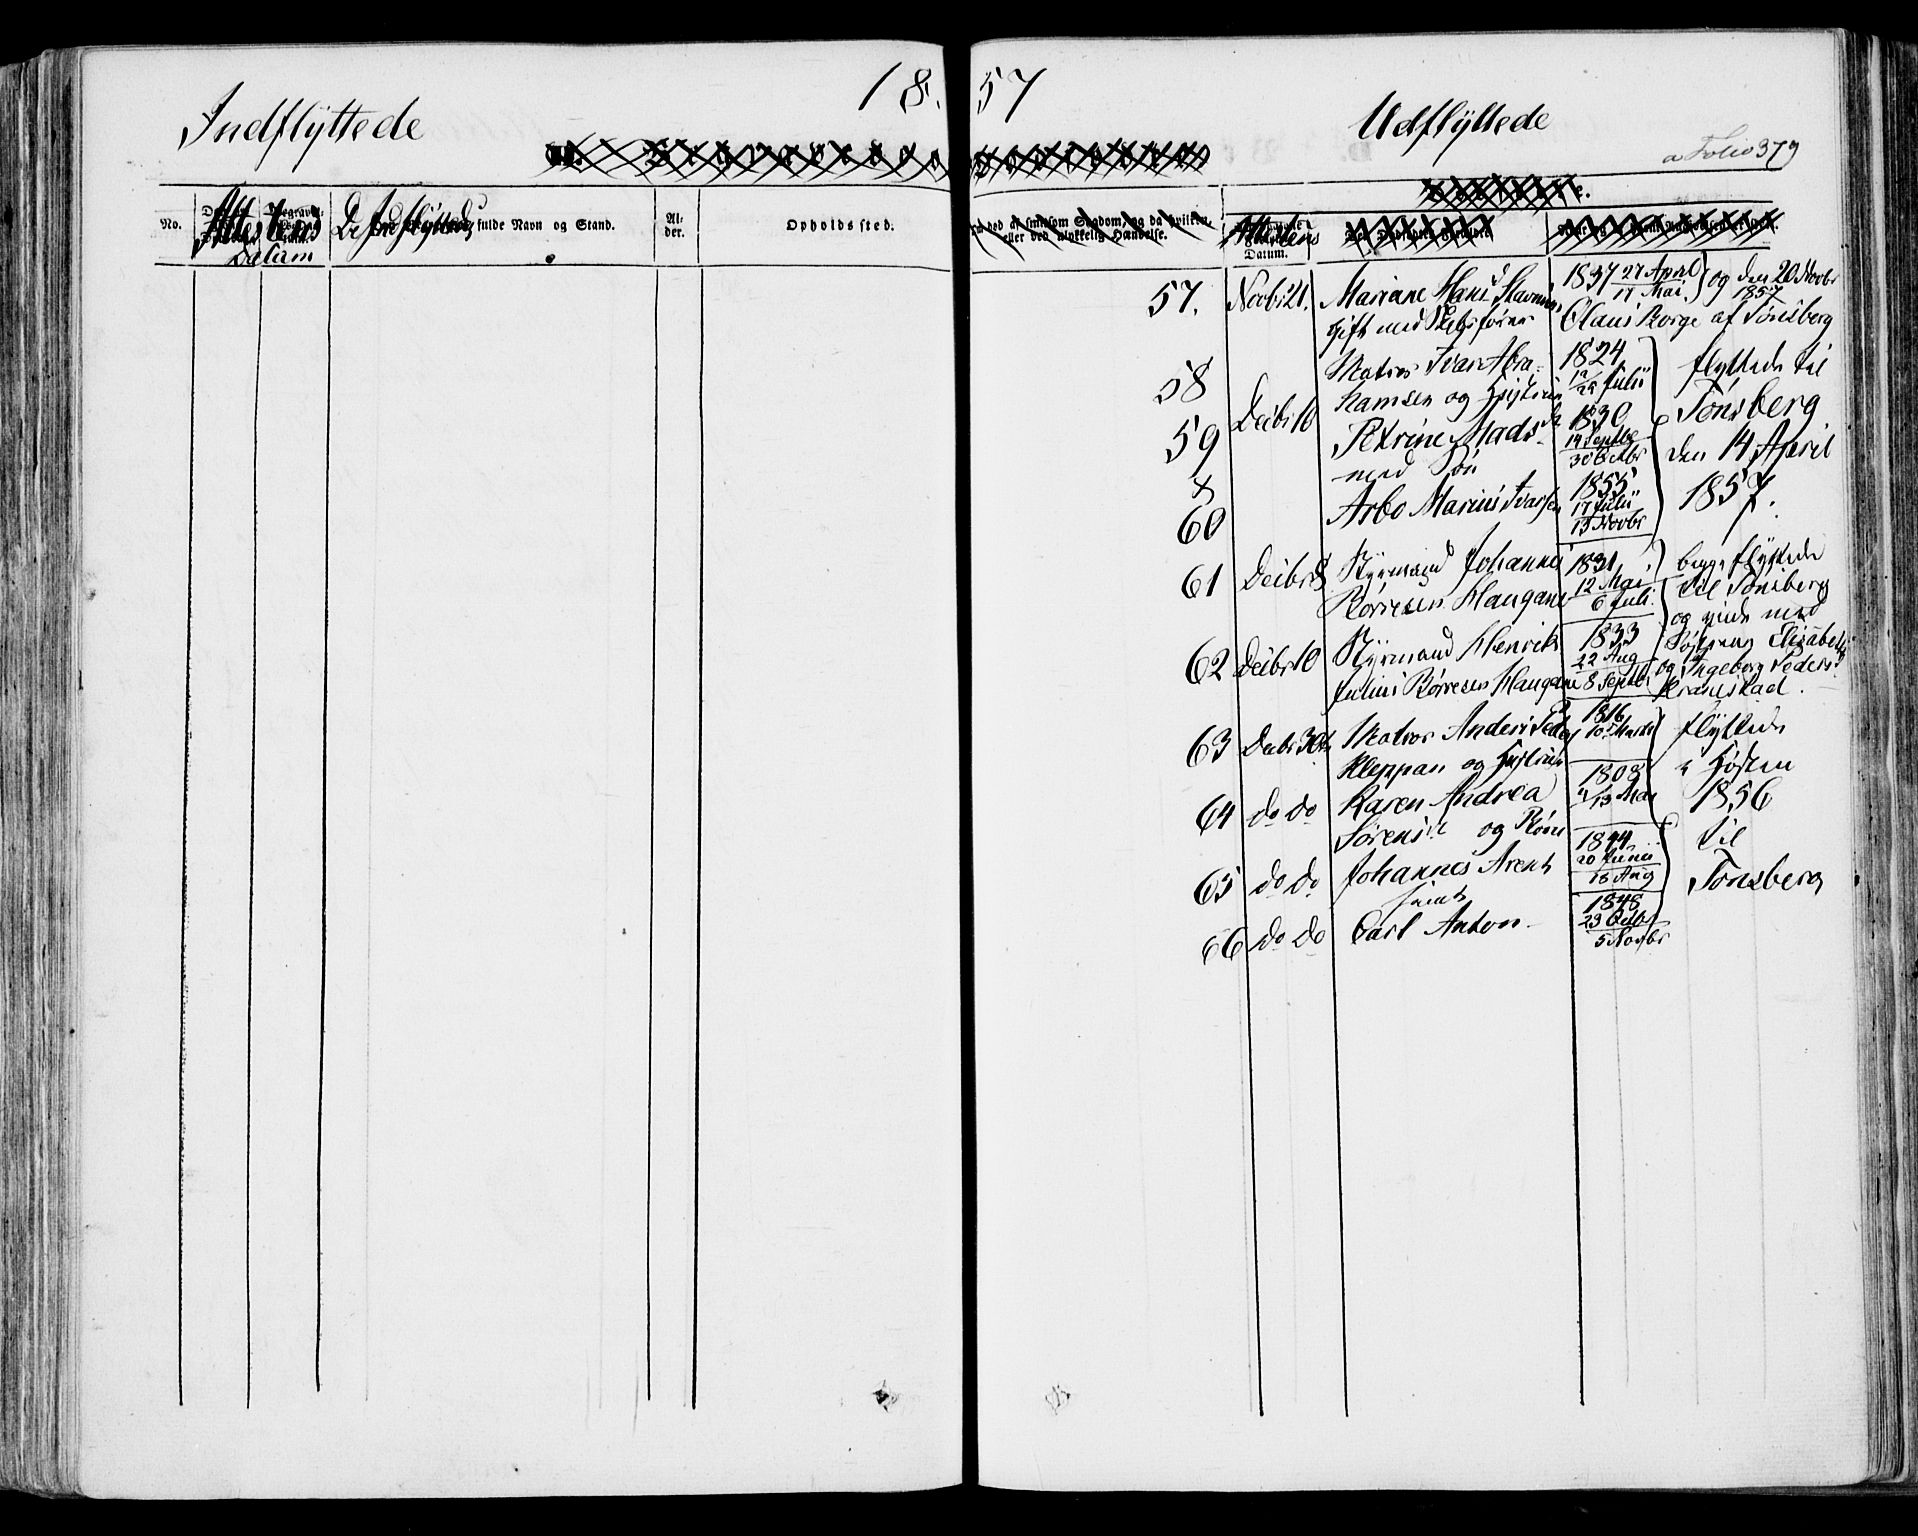 18 57
Indflÿttede
Udflÿttede
a Folio 379
No.
Attestens
Datum
De Indflÿttedes fulde Navn og Stand.
Al-
der.
Opholdssted.
Attestens
Datum.
57. Novbr 21. Mariane Hans
gift med Skibsfører
1837 27 April
17 Mai
og den 20 Novbr
1857
Olaus Borge af Tønsberg
58 Matros Ivar Abra-
hamsen og Hustrue
1824
12/25 Julii
flyttede til
59 Decbr 10 Petrine Mads dr
med Søn
1830
14 Septbr
30 Octbr
Tønsberg
den 14 April
60 Arbo Marius Ivarsen
1855
17 Julii
15 Novbr
1857.
61 Decbr 8 Styrmand Johannes
Børresen Haugane
1831
12 Mai
6 Juli
begge flyttede
til Tønsberg
og viede med
62 Decbr 10 Styrmand Henrik
Julius Børresen Haugane
1833
22 Aug
8 Septbr
Søstrene Elisabeth
og Ingeborg Peders
63 Decbr 30 Matros Anders Peders
Kleppan og Hustrue
1816
10 Marts
flyttede
i Høsten
64 do do Karen Andrea
Sørensdr og Børn
1808
13 Mai
1856
til
65 do do Johannes Arent
1844
20 Junii
18 Aug
Tønsberg
66 do do Carl Anton
1848
23 Octbr
5 Novbr